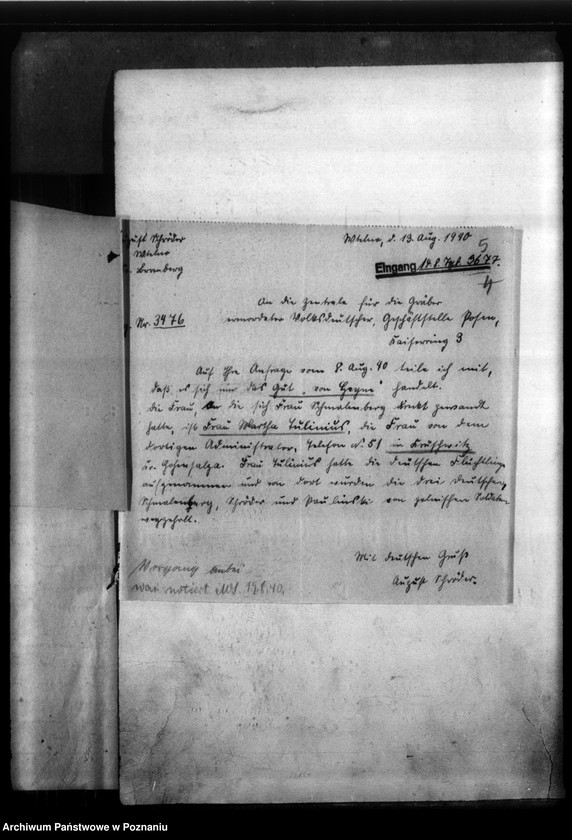 August Schröder
Wtelno
Bromberg
Wtelno, d. 13. Aug. 1940
5
Eingang 14.8. Tgb. 3677.
4
An die Zentrale für die Gräber
Nr. 3476
ermordeter Volksdeutscher, Geschäftstelle Posen,
Kaiserring 3
Auf Ihre Anfrage vom 8. Aug. 40 teile ich mit,
daß es sich um das Gut „von Heyne" handelt.
Die Frau, an die sich Frau Schmalenberg direkt gewandt
hatte, ist Frau Martha Tulinius, die Frau von dem
dortigen Administrator, Telefon No 51 in Kruschwitz
Kr. Hohensalza. Frau Tulinius hatte die deutschen Flüchtlinge
aufgenommen und von dort wurden die drei deutschen
Schmalenberg, Schröder und Paulinski von polnischen Soldaten
weggeholt.
Mit deutschem Gruß
August Schröder.
Vorgang anbei
war notiert 19.8.40.
Archiwum Państwowe w Poznaniu